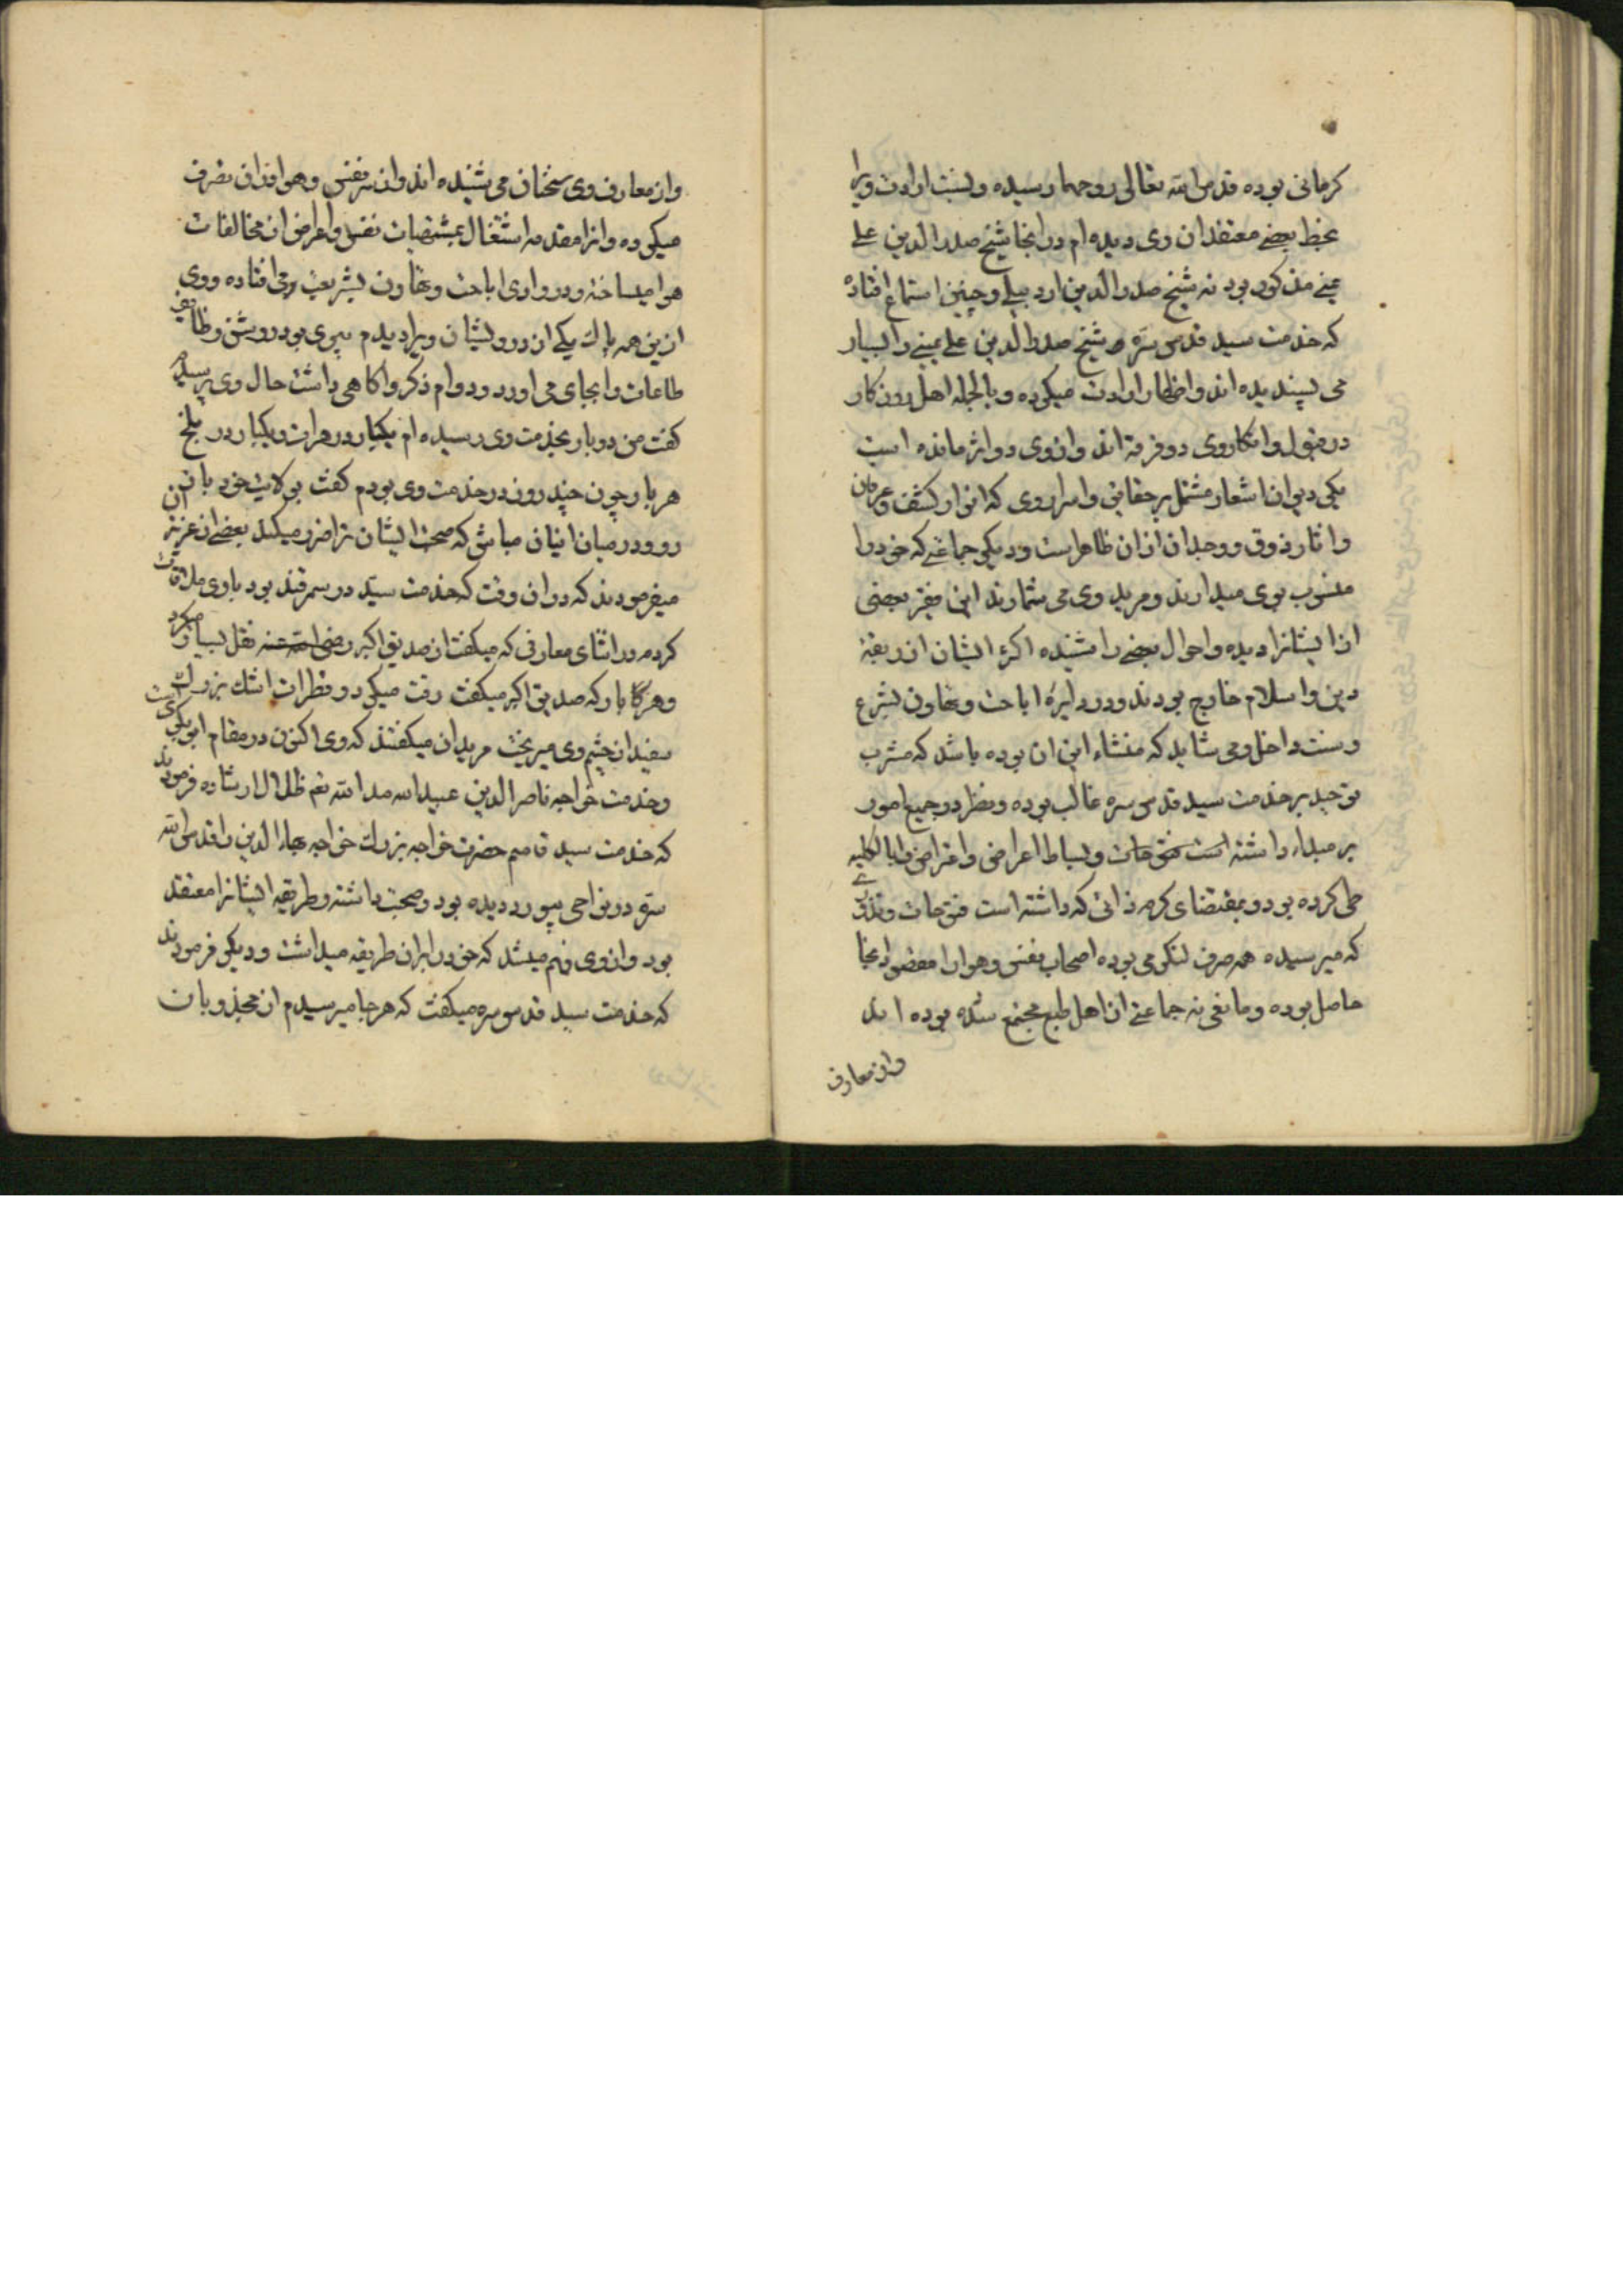 کرمانی بوده قدس الله تعالی روحهما رسیده و نسبت ارادت ویرا
بخط بعضی معتقدان وی دیده ام در انجا شیخ صدر الدین علی
یمنی مذکور بود نه شیخ صدر الدین اردبیلی و چنین استماع افتاده
که خدمت سید قدس سره شیخ صدر الدین علی یمنی را بسیار
می پسندیده اند و اظهار ارادت میکرده و بالجمله اهل روزکار
در قبول و انکار وی دو فرقه اند و از وی دو اثر مانده است
یکی دیوان اشعار مشتمل بر حقایق و اسرار وی که انوار کشف و عرفان
و اثار ذوق و وجدان ازان ظاهر است و دیکر جماعتی که خود را
منسوب بوی میدارند و مرید وی می شمارند این فقیر بعضی
از ایشانرا دیده و احوال بعضی را شنیده اکثر ایشان از ربقهٔ
دین و اسلام خارج بودند و در دایرهٔ اباحت و تهاون بشرع
و سنت داخل و می شاید که منشاء این ان بوده باشد که مشرب
توحید بر خدمت سید قدس سره غالب بوده و نظر در جمیع امور
بر مبداء داشته است و بساط اعراض و اعتراض را بالکلیه
طی کرده بود و بمقتضای کرم ذاتی که داشته است فتوحات و نذوری
که میرسیده همه صرف لنکر می بوده اصحاب نفس و هوا را مقصود انجا
حاصل بوده و مانعی نه جماعتی از اهل طبع مجتمع شده بوده اند
و از معارف
و از معارف وی سخنان می شنیده اند و از سر نفس و هوا دران تصرف
میکرده و انرا مقدمه اشتغال بمشتهیات نفس و اعراض از مخالفات
هوا میساخته و در وادی اباحت و تهاون بشریعت می افتاده و وی
ازین همه پاک یکی از درویشان ویرا دیدم پیری بود روشن وظایف
طاعات را بجای می اورد و دوام ذکر و اکاهی داشت حال وی پرسیدم
کفت من دو بار بخدمت وی رسیده ام یکبار در هرات و یکبار در بلخ
هر بار چون چند روز در خدمت وی بودم کفت بولایت خود باز
رو و در میان اینان مباش که صحبت ایشان ترا ضرر میکند بعضی از عزیزان
میفرمودند که دران وقت که خدمت سید در سمرقند بود با وی ملاقات
کردم در اثنای معارفی که میکفت از صدیق اکبر رضی الله عنه نقل بسیار میکرد
و هر کاه بار که صدیق اکبر میکفت رقت میکرد و قطرات اشک بزرک
سفید از چشم وی میریخت مریدان میکفتند که وی اکنون در مقام ابوبکری است
و خدمت خواجه ناصر الدین عبید الله مد الله تعالی ظلال ارشاده فرمودند
که خدمت سید قاسم حضرت خواجه بزرک خواجه بهاء الدین را قدس الله
سره در نواحی دیده بود و صحبت داشته و طریقه ایشانرا معتقد
بود و از وی فهم میشد که خود را بران طریقه میداشت و دیکر فرمودند
که خدمت سید قدس سره میکفت که هر جا میرسیدم از مجذوبان